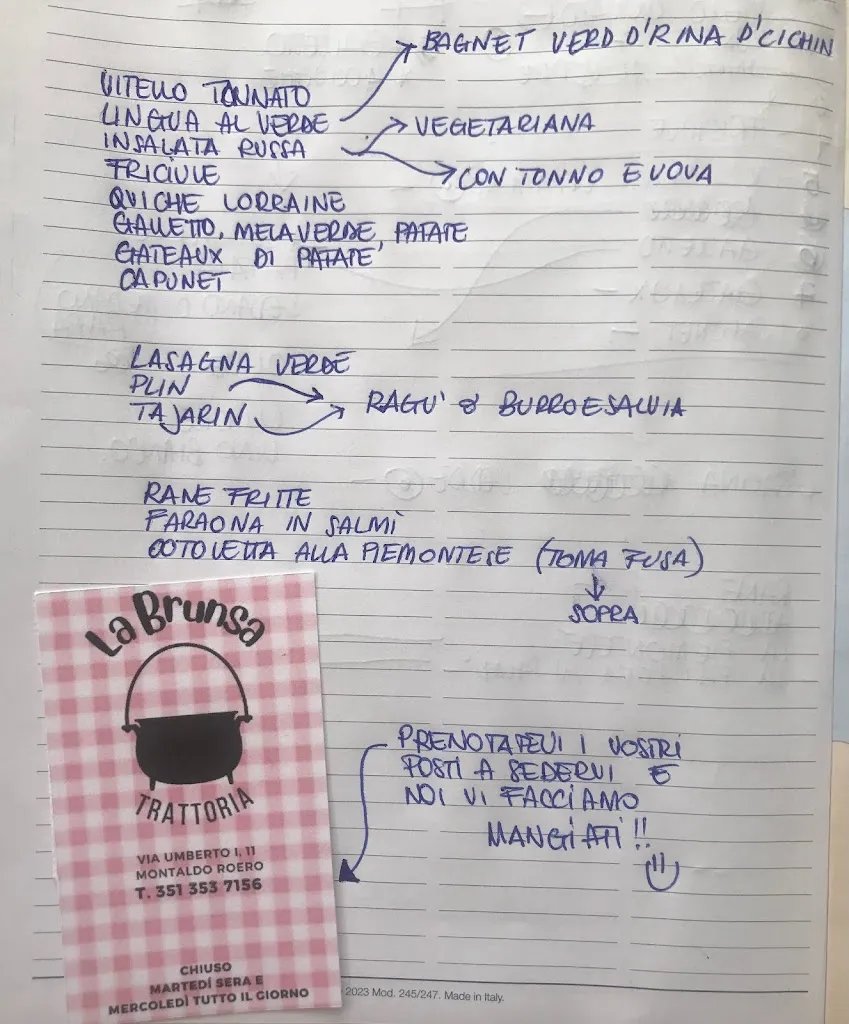 BAGNET VERD D'RINA D'CICHIN
VITELLO TONNATO
LINGUA AL VERDE
INSALATA RUSSA
VEGETARIANA
CON TONNO E UOVA
FRICIULE
QUICHE LORRAINE
GALLETTO, MELA VERDE, PATATE
GATEAUX DI PATATE
CAPUNET
LASAGNA VERDE
PLIN
TAJARIN
RAGU' O BURRO E SALVIA
RANE FRITTE
FARAONA IN SALMÌ
COTOLETTA ALLA PIEMONTESE (TOMA FUSA)
SOPRA
PRENOTATEVI I VOSTRI
POSTI A SEDERVI E
NOI VI FACCIAMO
MANGIATI!!
La Brunsa
TRATTORIA
VIA UMBERTO I, 11
MONTALDO ROERO
T. 351 353 7156
CHIUSO
MARTEDÌ SERA E
MERCOLEDÌ TUTTO IL GIORNO
2023 Mod. 245/247. Made in Italy.